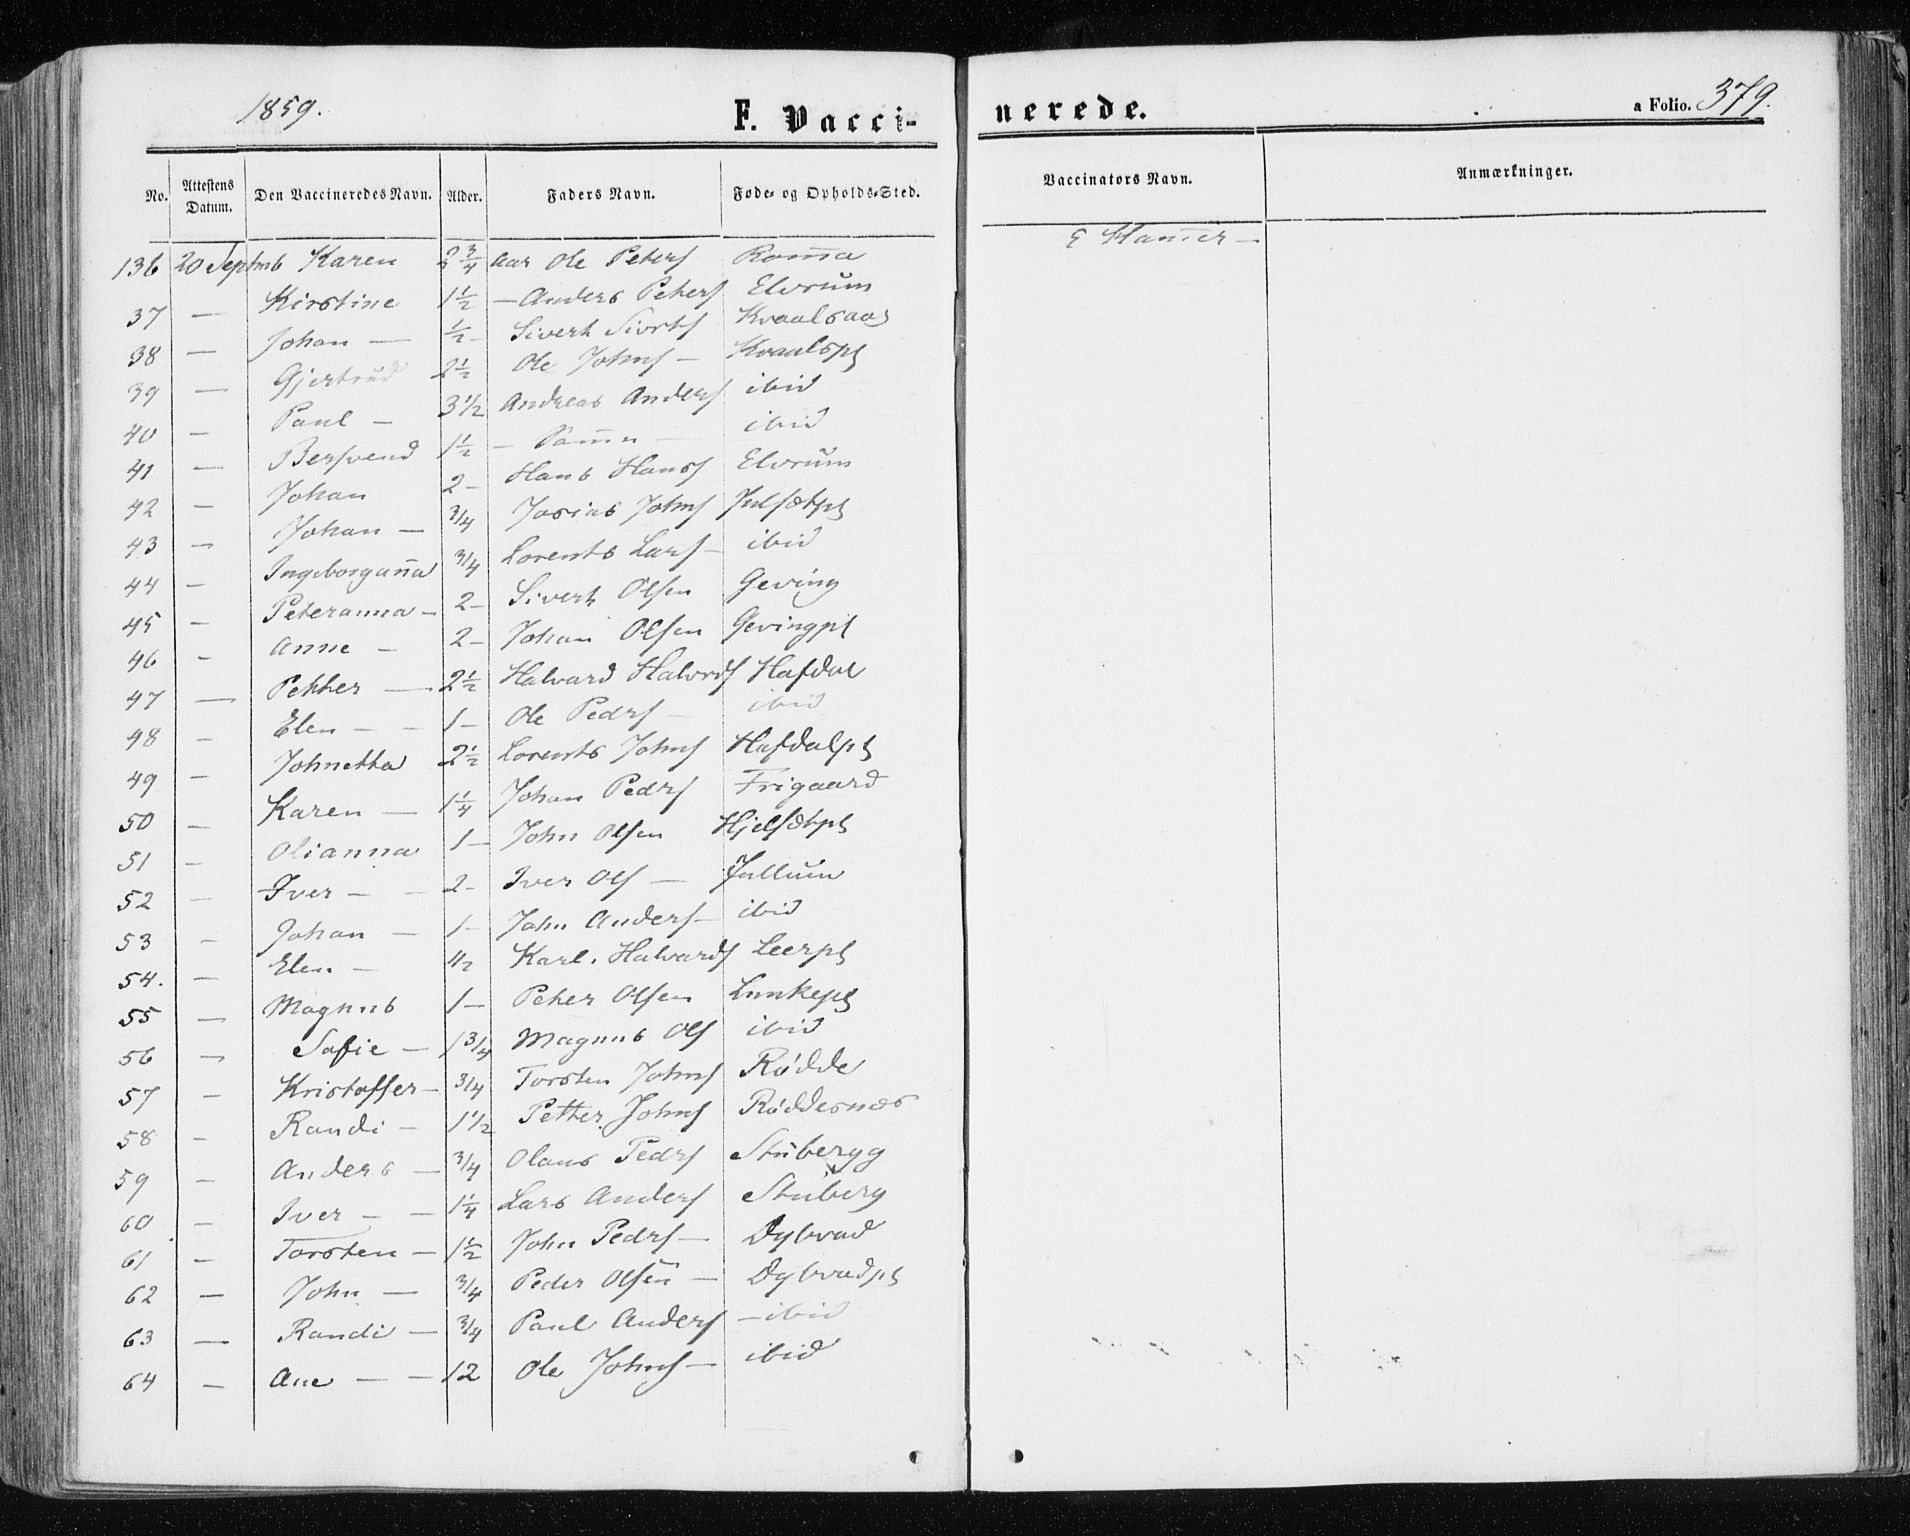 1859. F. Vacci- nerede. a Folio. 379.
No. Attestens Datum. Den Vaccineredes Navn. Alder. Faders Navn. Føde- og Opholds-Sted. Vaccinators Navn. Anmærkninger.
136 20 Septmb Karen 2 3/4 Aar Ole Peters Romma
37 — Kirstine 1 1/2 — Anders Peters Elvrum
38 — Johan — 1/2 — Sivert Sivrts Kvaalsaas
39 — Gjertrud 2 1/2 Ole Johns — Kvaalspl
40 — Paul — 3 1/2 Andreas Anders ibid
41 — Bersvend 1 1/2 — Samm — ibid
42 — Johan 2 — Hans Hans Elvrum
43 — Johan — 3/4 Josias Johns Julsetpl
44 — Ingeborganna 3/4 Lorents Lars — ibid
45 — Peteranna — 2 — Sivert Olsen Geving
46 — Anne — 2 — Johan Olsen Gevingpl
47 — Petter — 2 1/2 Halvard Halvrds Hafdal
48 — Elen — — 1 — Ole Peders — ibid
49 — Johnetta 2 1/2 Lorents Johns Hafdalpl
50 — Karen — 1 1/4 Johan Pedrs Frigaard
51 — Olianna 1 — John Olsen Hjelsetpl
52 — Iver — — 2 — Iver Ols — Jullum
53 — Johan — 1 — John Anders — ibid
54. — Elen — 1/2 Karl. Halvards Leerpl
55 — Magnus 1 — Peter Olsen Lunkepl
56 — Sofie — 1 3/4 Magnus Ols ibid
57 — Kristoffer — 3/4 Torsten Johns Rødde
58 — Randi — 1 1/2 Petter Johns Røddesnæs
59 — Anders — 3/4 Olaus Pedrs Stubergg
60 — Iver — — 1 1/4 Lars Anders Stuberg
61 — Torsten — 1 1/2 John Pedrs — Dybvad
62 — John — 3/4 Peder Olsen — Dybvadpl
63 — Randi — 3/4 Paul Anders — ibid
64 — Ane — — 12 Ole Johns — ibid